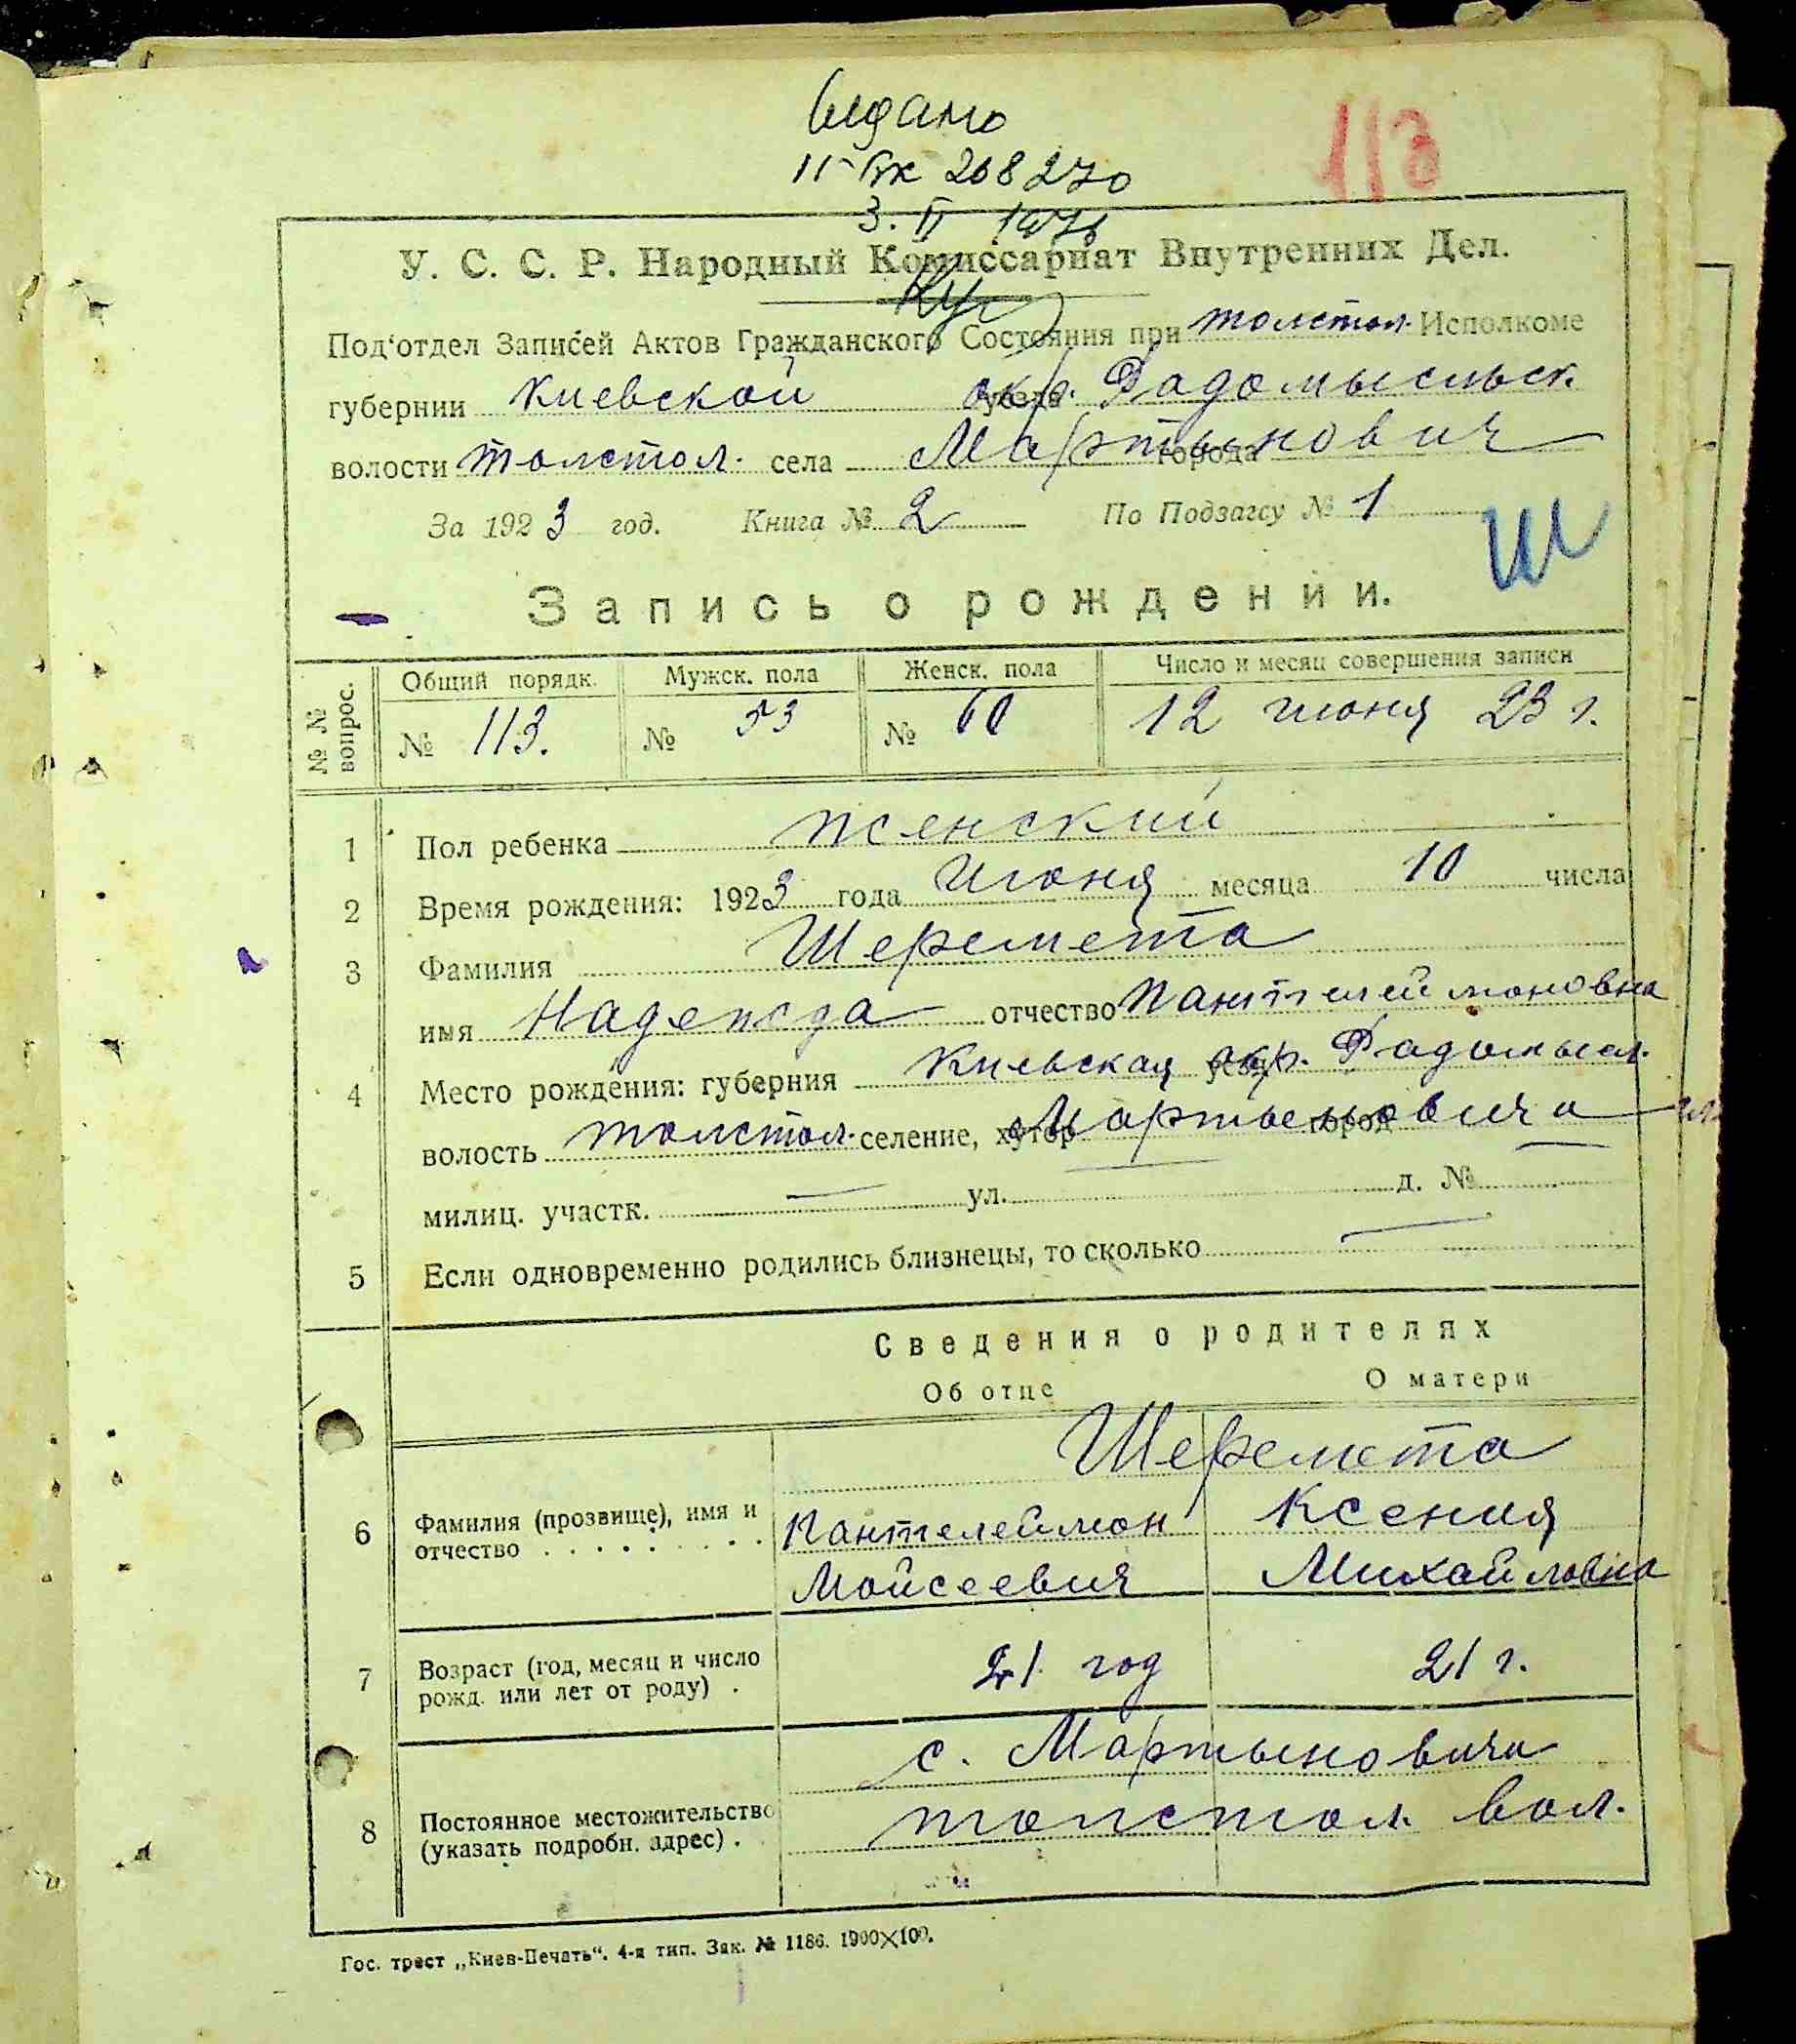 видано
II-БК 268270
3. II 1976
113
У. С. С. Р. Народный Комиссариат Внутренних Дел.
Под'отдел Записей Актов Гражданского Состояния при толстол. Исполкоме
губернии Киевской окр. Радомысльск.
волости толстол. села Мартынович города
За 1923 год. Книга № 2 По Подзагсу № 1
Ш
Запись о рождении.
№ № вопрос.
Общий порядк. Мужск. пола Женск. пола Число и месяц совершения записи
№ 113. № 53 № 60 12 июня 23 г.
1 Пол ребенка женский
2 Время рождения: 1923 года июня месяца 10 числа
3 Фамилия Шеремета
имя Надежда отчество Пантелеймоновна
4 Место рождения: губерния Киевская окр. Радомысл.
волость толстол. селение, хутор Мартыновичи город
милиц. участк. — ул. д. №
5 Если одновременно родились близнецы, то сколько —
Сведения о родителях
Об отце О матери
Шеремета
6 Фамилия (прозвище), имя и отчество . . . . . . . . . Пантелеймон Ксения
Мойсеевич Михайловна
7 Возраст (год, месяц и число рожд. или лет от роду) . 21 год 21 г.
с. Мартыновичи
8 Постоянное местожительство (указать подробн. адрес) . толстол. вол.
Гос. трест „Киев-Печать“. 4-я тип. Зак. № 1186. 1900×100.